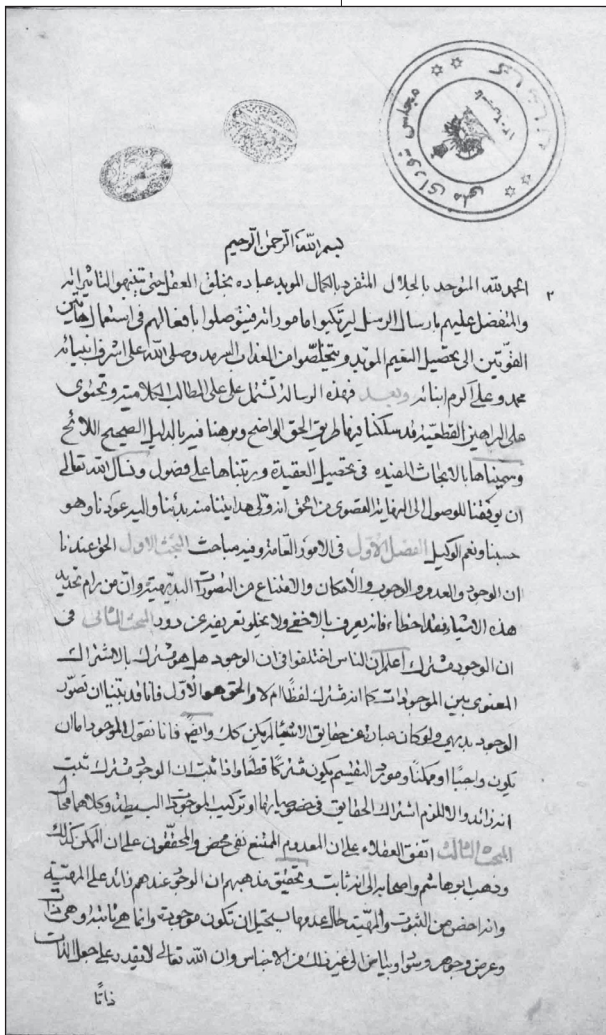 مجلس شورای ملی
بسم الله الرحمن الرحیم
الحمد لله المتوحد بالجلال المتفرد بالکمال الموید عباده بخلق العقل حتی
۲
والمتفضل علیهم بارسال الرسل لیرتکبوا مامورانه فیتوصلوا بافعالهم فی استعمال هاتین
القوتین الی تحصیل النعیم الموبد ویتخلصوا من العذاب السرمد وصلی الله علی اشرف انبیائه
محمد وعلی اکرم ابنائه وبعد فهذه الرسالة تشتمل علی علی المطالب الکلامیة وتحتوی
علی البراهین القطعیة قد سلکنا فیها طریق الحق الواضح وبرهنا فیه بالدلیل الصحیح اللائح
وسمیناها بالابحاث المفیده فی تحصیل العقیدة ورتبناها علی فصول ونسال الله تعالی
ان یوفقنا للوصول الی النهایة القصوی من الحق انه ولی هدایتنا منه بدئنا والیه عودنا وهو
حسبنا ونعم الوکیل الفصل الاول فی الامور العامة وفیه مباحث البحث الاول الحق عندنا
ان الوجود والعدم والوجوب والامکان والامتناع من التصورات البدیهیة وان من رام تحدید
هذه الاشیاء فقد اخطاء فانه یعرف بالاخفی ولا یخلو تعریفه عن دور البحث الثانی فی
ان الوجود مشترک اعلم ان الناس اختلفوا فی ان الوجود هل هو مشترک بالاشتراک
المعنوی بین الموجودات کما انه مشترک لفظا ام لا والحق هو الاول فانا قد بینا ان تصور
الوجود بدیهی ولو کان عبارة عن حقایق الاشیاء لم یکن کذلک وایضا فانا نقول الموجود اما ان
یکون واجبا او ممکنا ومورد التقسیم یکون مشترکا قطعا واذا ثبت ان الوجود مشترک ثبت
انه زائد والا للزم اشتراک الحقایق فی وترکیب الموجودات البسیطة وکلاهما محال
البحث الثالث اتفق العقلاء علی ان المعدوم الممتنع نفی محض والمحققون علی ان الممکن کذلک
وذهب ابو هاشم واصحابه الی انه ثابت وتحقیق مذهبهم ان الوجود عندهم زائد علی المهیة
وانه اخص من الثبوت والمهیة حال عدمها یستحیل ان تکون موجودة وانما هی ثابتة وهی ذات
وعرض وجوهر وسواد وبیاض الی غیر ذلک من الاجناس وان الله تعالی لا یقدر علی جعل الذات
ذاتا